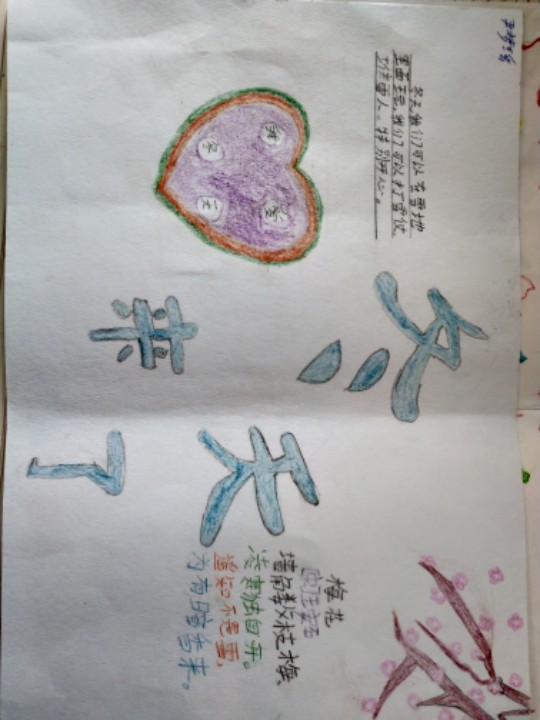 冬天我们可以在雪地
里面玩,我们可以打雪仗,
雪人。特别开心。
我 爱
冬 天
冬天
来了
梅花
王安石
墙角数枝梅,
凌寒独自开。
遥知不是雪,
为有暗香来。